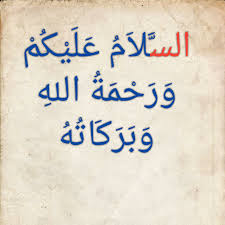 السَّلَامُ عَلَيْكُمْ
وَرَحْمَةُ اللهِ
وَبَرَكَاتُهُ